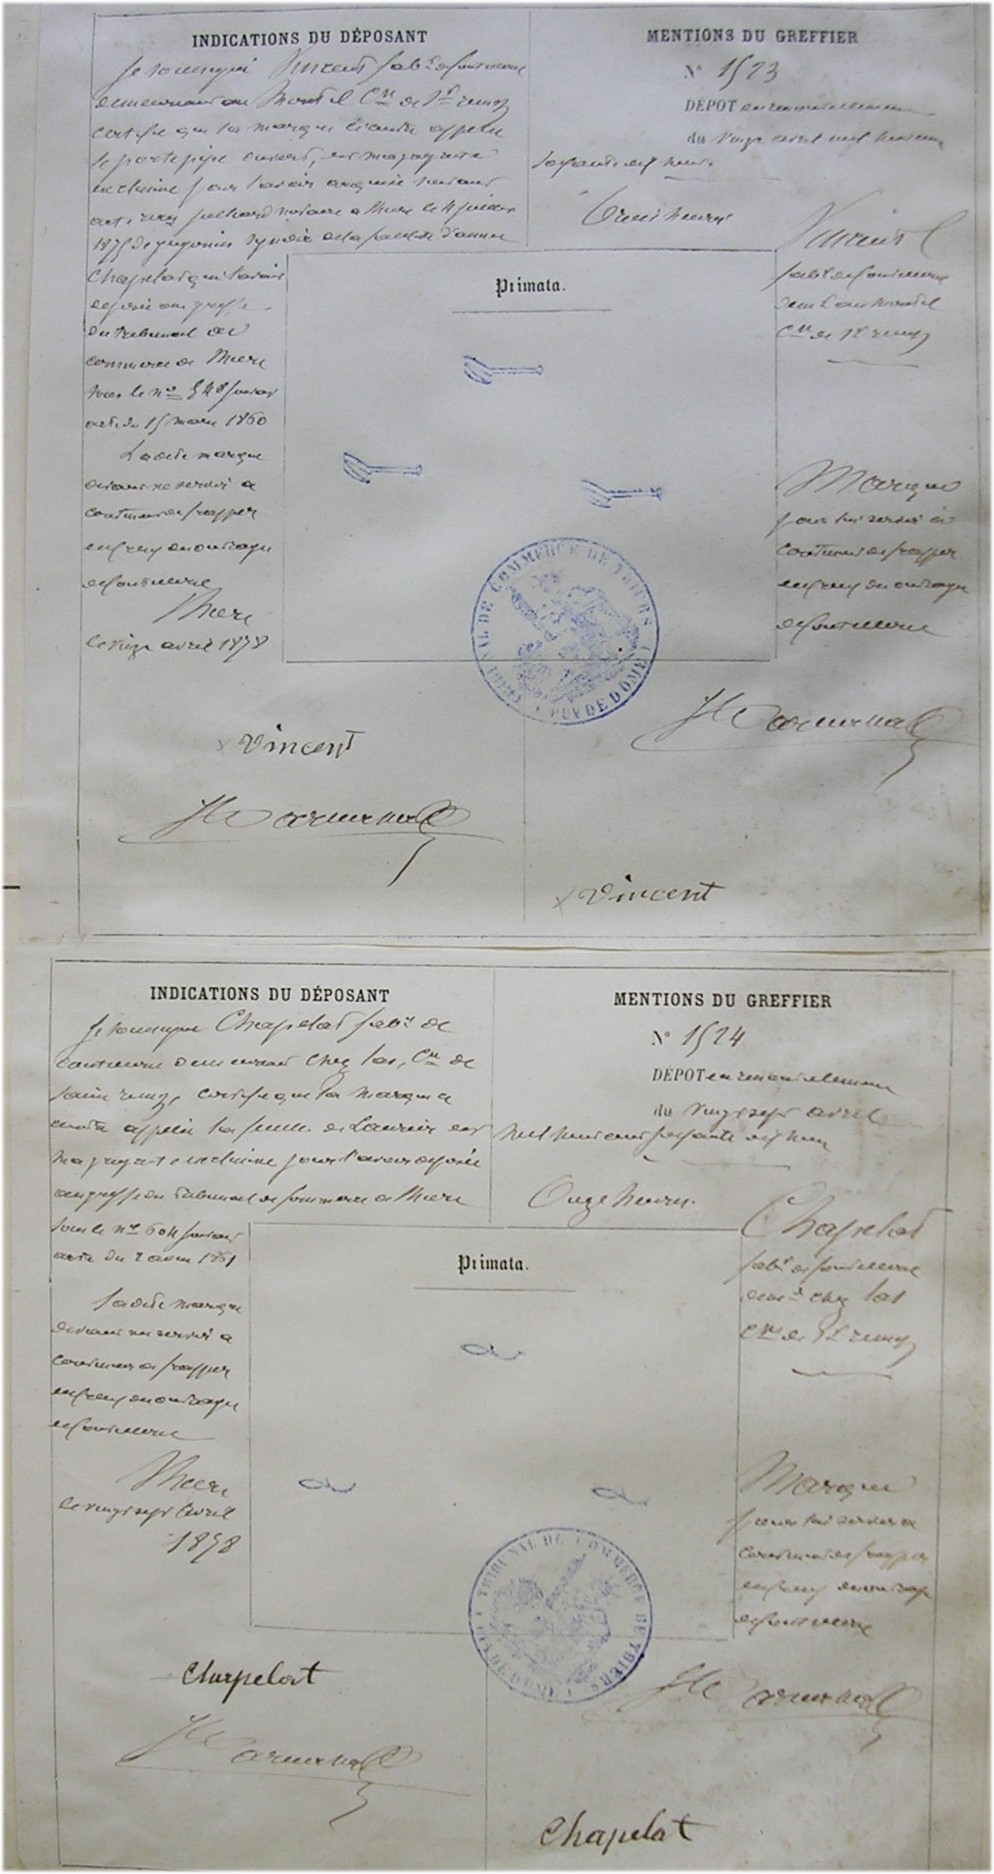 INDICATIONS DU DÉPOSANT
Je soussigné Vincent fab.t de coutellerie
demeurant au Moutel C.ne de S.t remy
certifie que la marque ci contre appelée
le porte pipe ouvert, est ma propriété
exclusive pour l'avoir acquise suivant
acte reçu notaire a Thiers le 4
1875 de syndic de la faillite d'
Chapelat qui l'avait
déposée au greffe
du tribunal de
commerce de Thiers
sous le n.o 548 suivant
acte du 15 mars 1860
La dite marque
devant me servir a
continuer de frapper
en creux un ouvrage
de coutellerie
Thiers
le vingt avril 1878
Vincent
MENTIONS DU GREFFIER
N° 1523
DÉPOT en renouvellement
du vingt avril mil huit cent
soixante dix huit
heures
Vincent
fab.t de coutellerie
dem.t au Moutel
C.ne de S.t remy
Marque
pour lui servir à
continuer de frapper
en creux un ouvrage
de coutellerie
Primata.
TRIBUNAL DE COMMERCE DE THIERS (PUY DE DOME)
Vincent
INDICATIONS DU DÉPOSANT
Je soussigné Chapelat fab.t de
coutellerie demeurant chez las, C.ne de
saint remy, certifie que la marque ci
contre appelée la feuille de Laurier est
ma propriété exclusive pour l'avoir déposée
au greffe du tribunal de commerce de Thiers
sous le n.o 604 suivant
acte du 2 1861
La dite marque
devant me servir a
continuer de frapper
en creux un ouvrage
de coutellerie
Thiers
le vingt sept avril
1878
Chapelat
MENTIONS DU GREFFIER
N° 1524
DÉPOT en renouvellement
du vingt sept avril
mil huit cent soixante dix huit
Onze heures.
Chapelat
fab.t de coutellerie
dem.t chez las
C.ne de S.t remy
Marque
pour lui servir a
continuer de frapper
en creux un ouvrage
de coutellerie
Primata.
TRIBUNAL DE COMMERCE DE THIERS (PUY DE DOME)
Chapelat